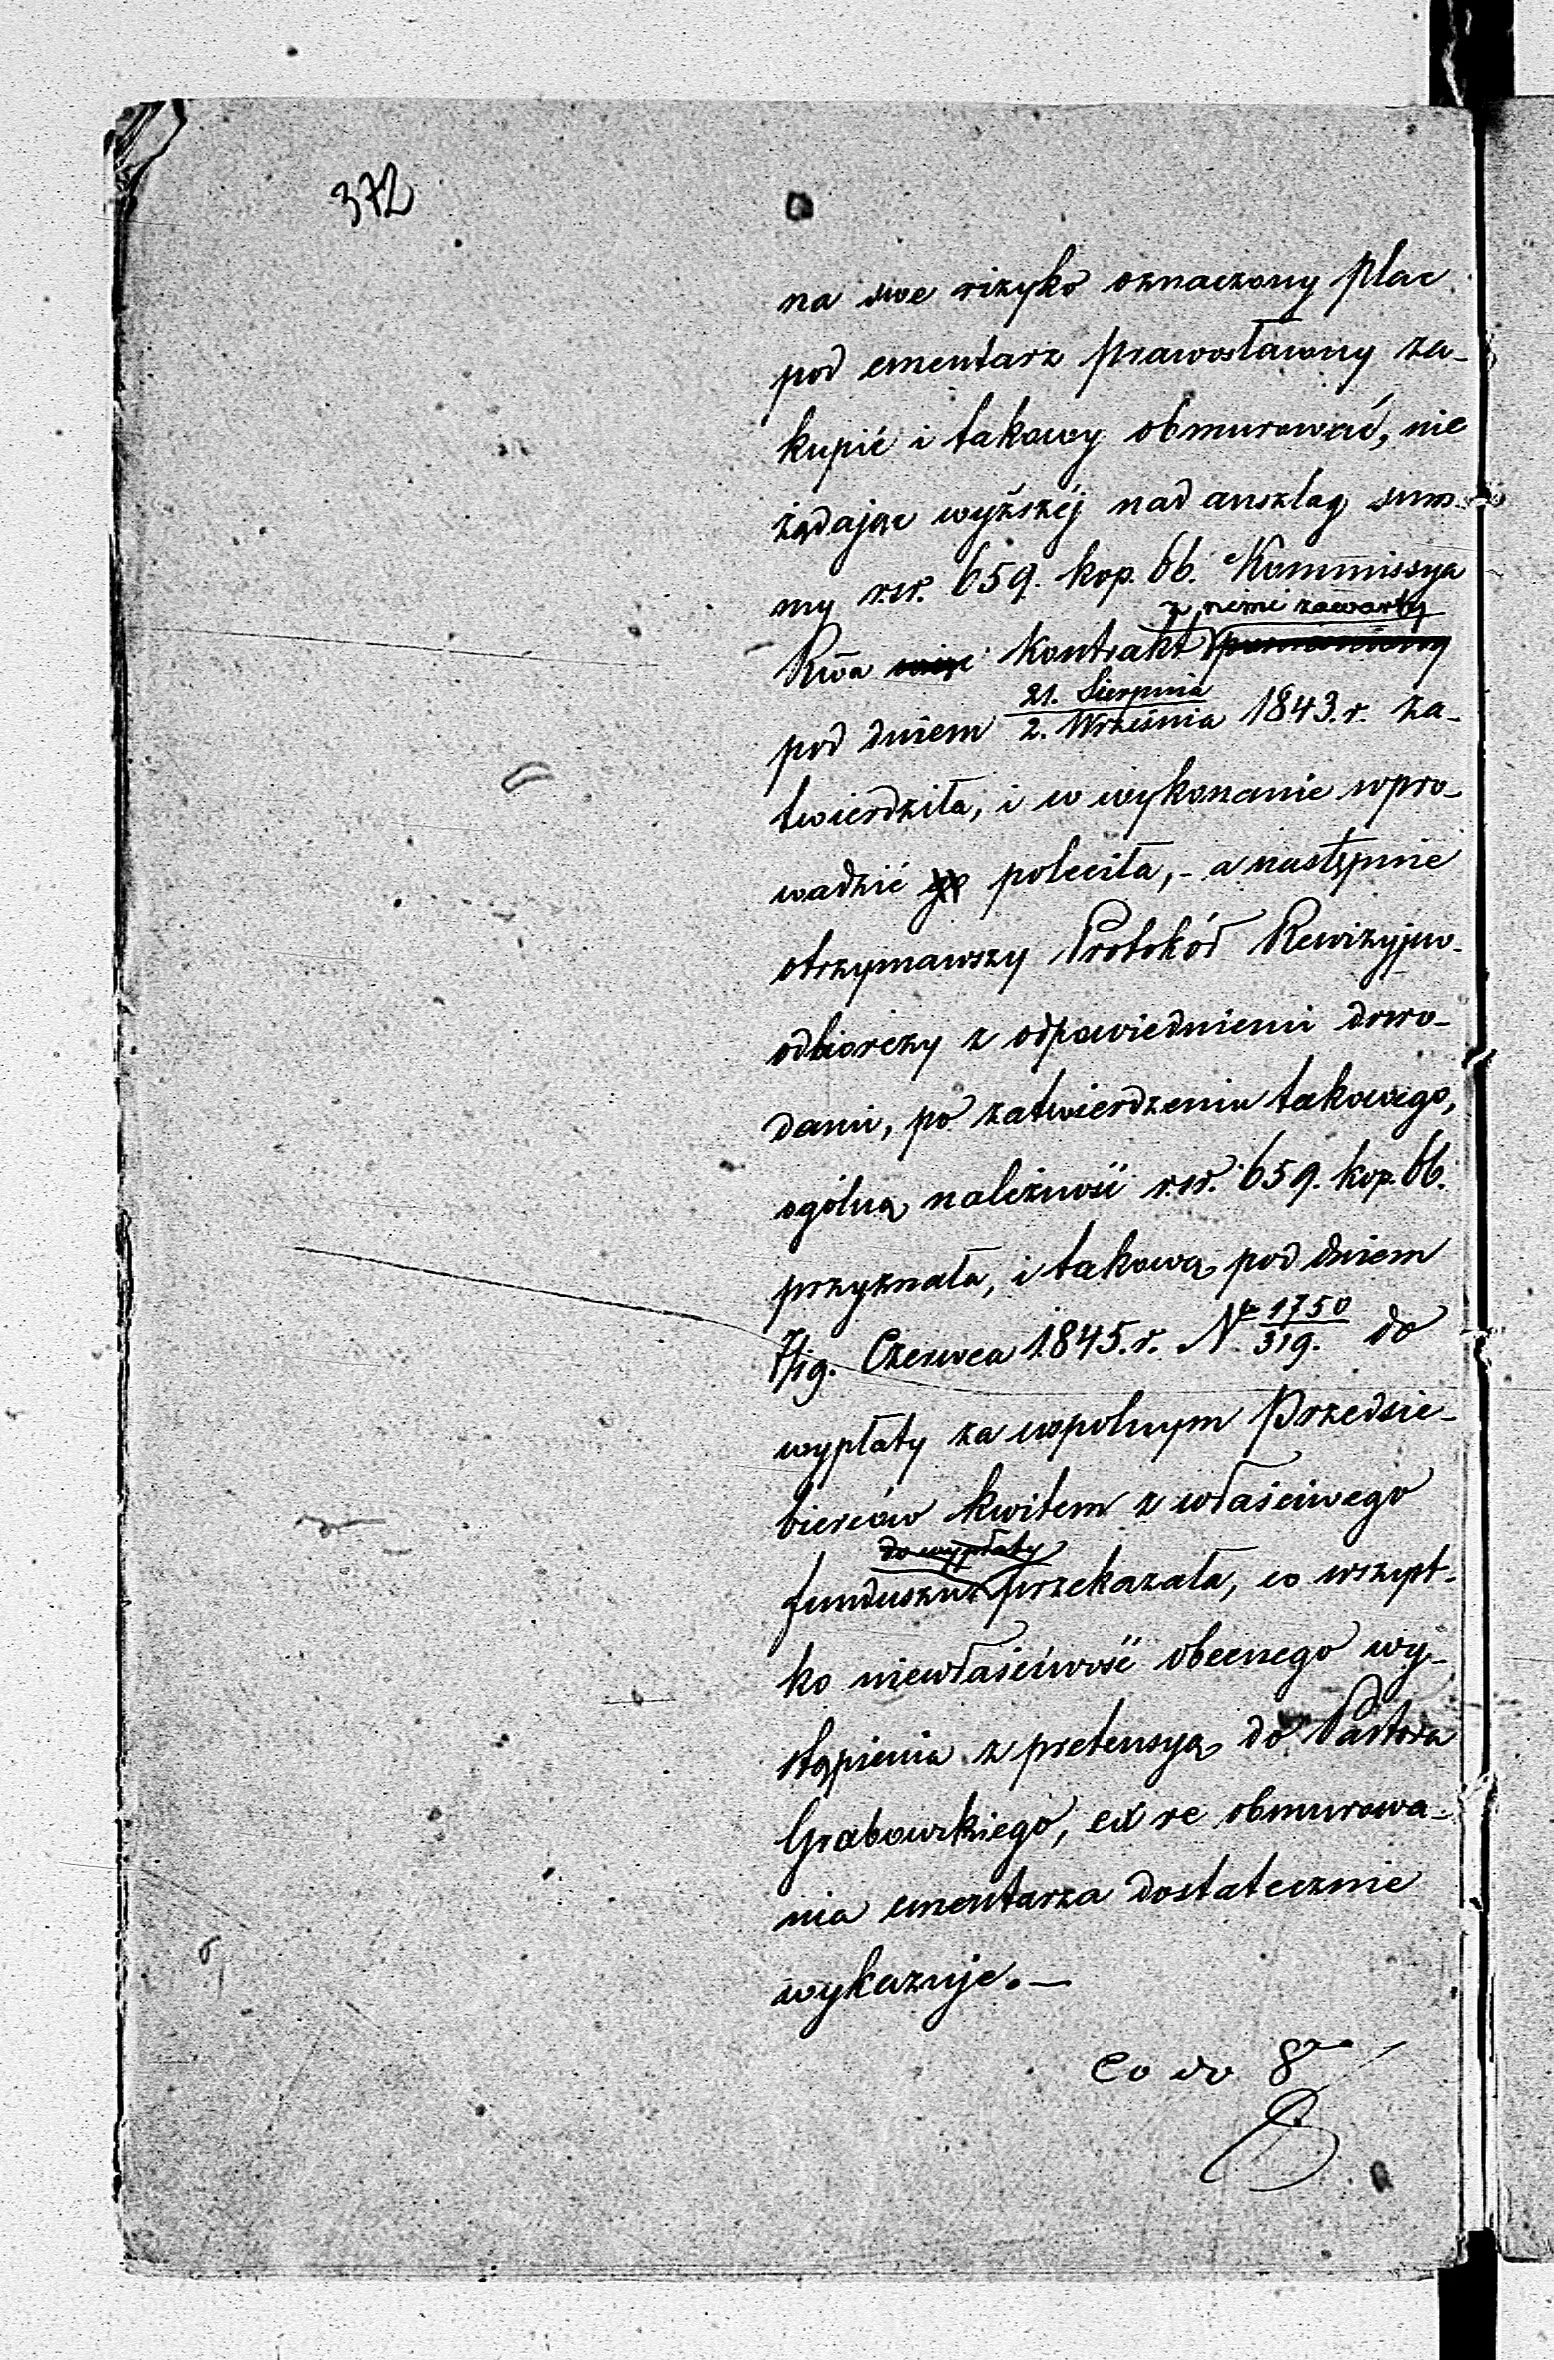 372
na swe rizyko oznaczony plac
pod cmentarz prawosławny za-
kupić i takowy obmurować, nie
żądając wyższéj nad anszlag sum-
my rsr. 659. kop. 66. Kommissya
z nimi zawarty
Rwa kontrakt
pod dniem 21. Sierpnia / 2. Września 1843. r. za-
twierdziła, i w wykonanie wpro-
wadzić poleciła, - a następnie
otrzymawszy Protokół Rewizyjno-
odbiorczy z odpowiedniemi dowo-
dami, po zatwierdzeniu takowego,
ogólną należność rsr. 659. kop. 66.
przyznała, i takową pod dniem
7/19. Czerwca 1845. r. No 1750/319. do
wypłaty za wspolnym Przedsie-
bierców kwitem z właściwego
do wypłaty
funduszu przekazała, co wszyst-
ko niewłaściwość obecnego wy-
stąpienia z pretensyą do Pastora
Grabowskiego, ex re obmurowa-
nia cmentarza dostatecznie
wykazuje. —
Co do 8